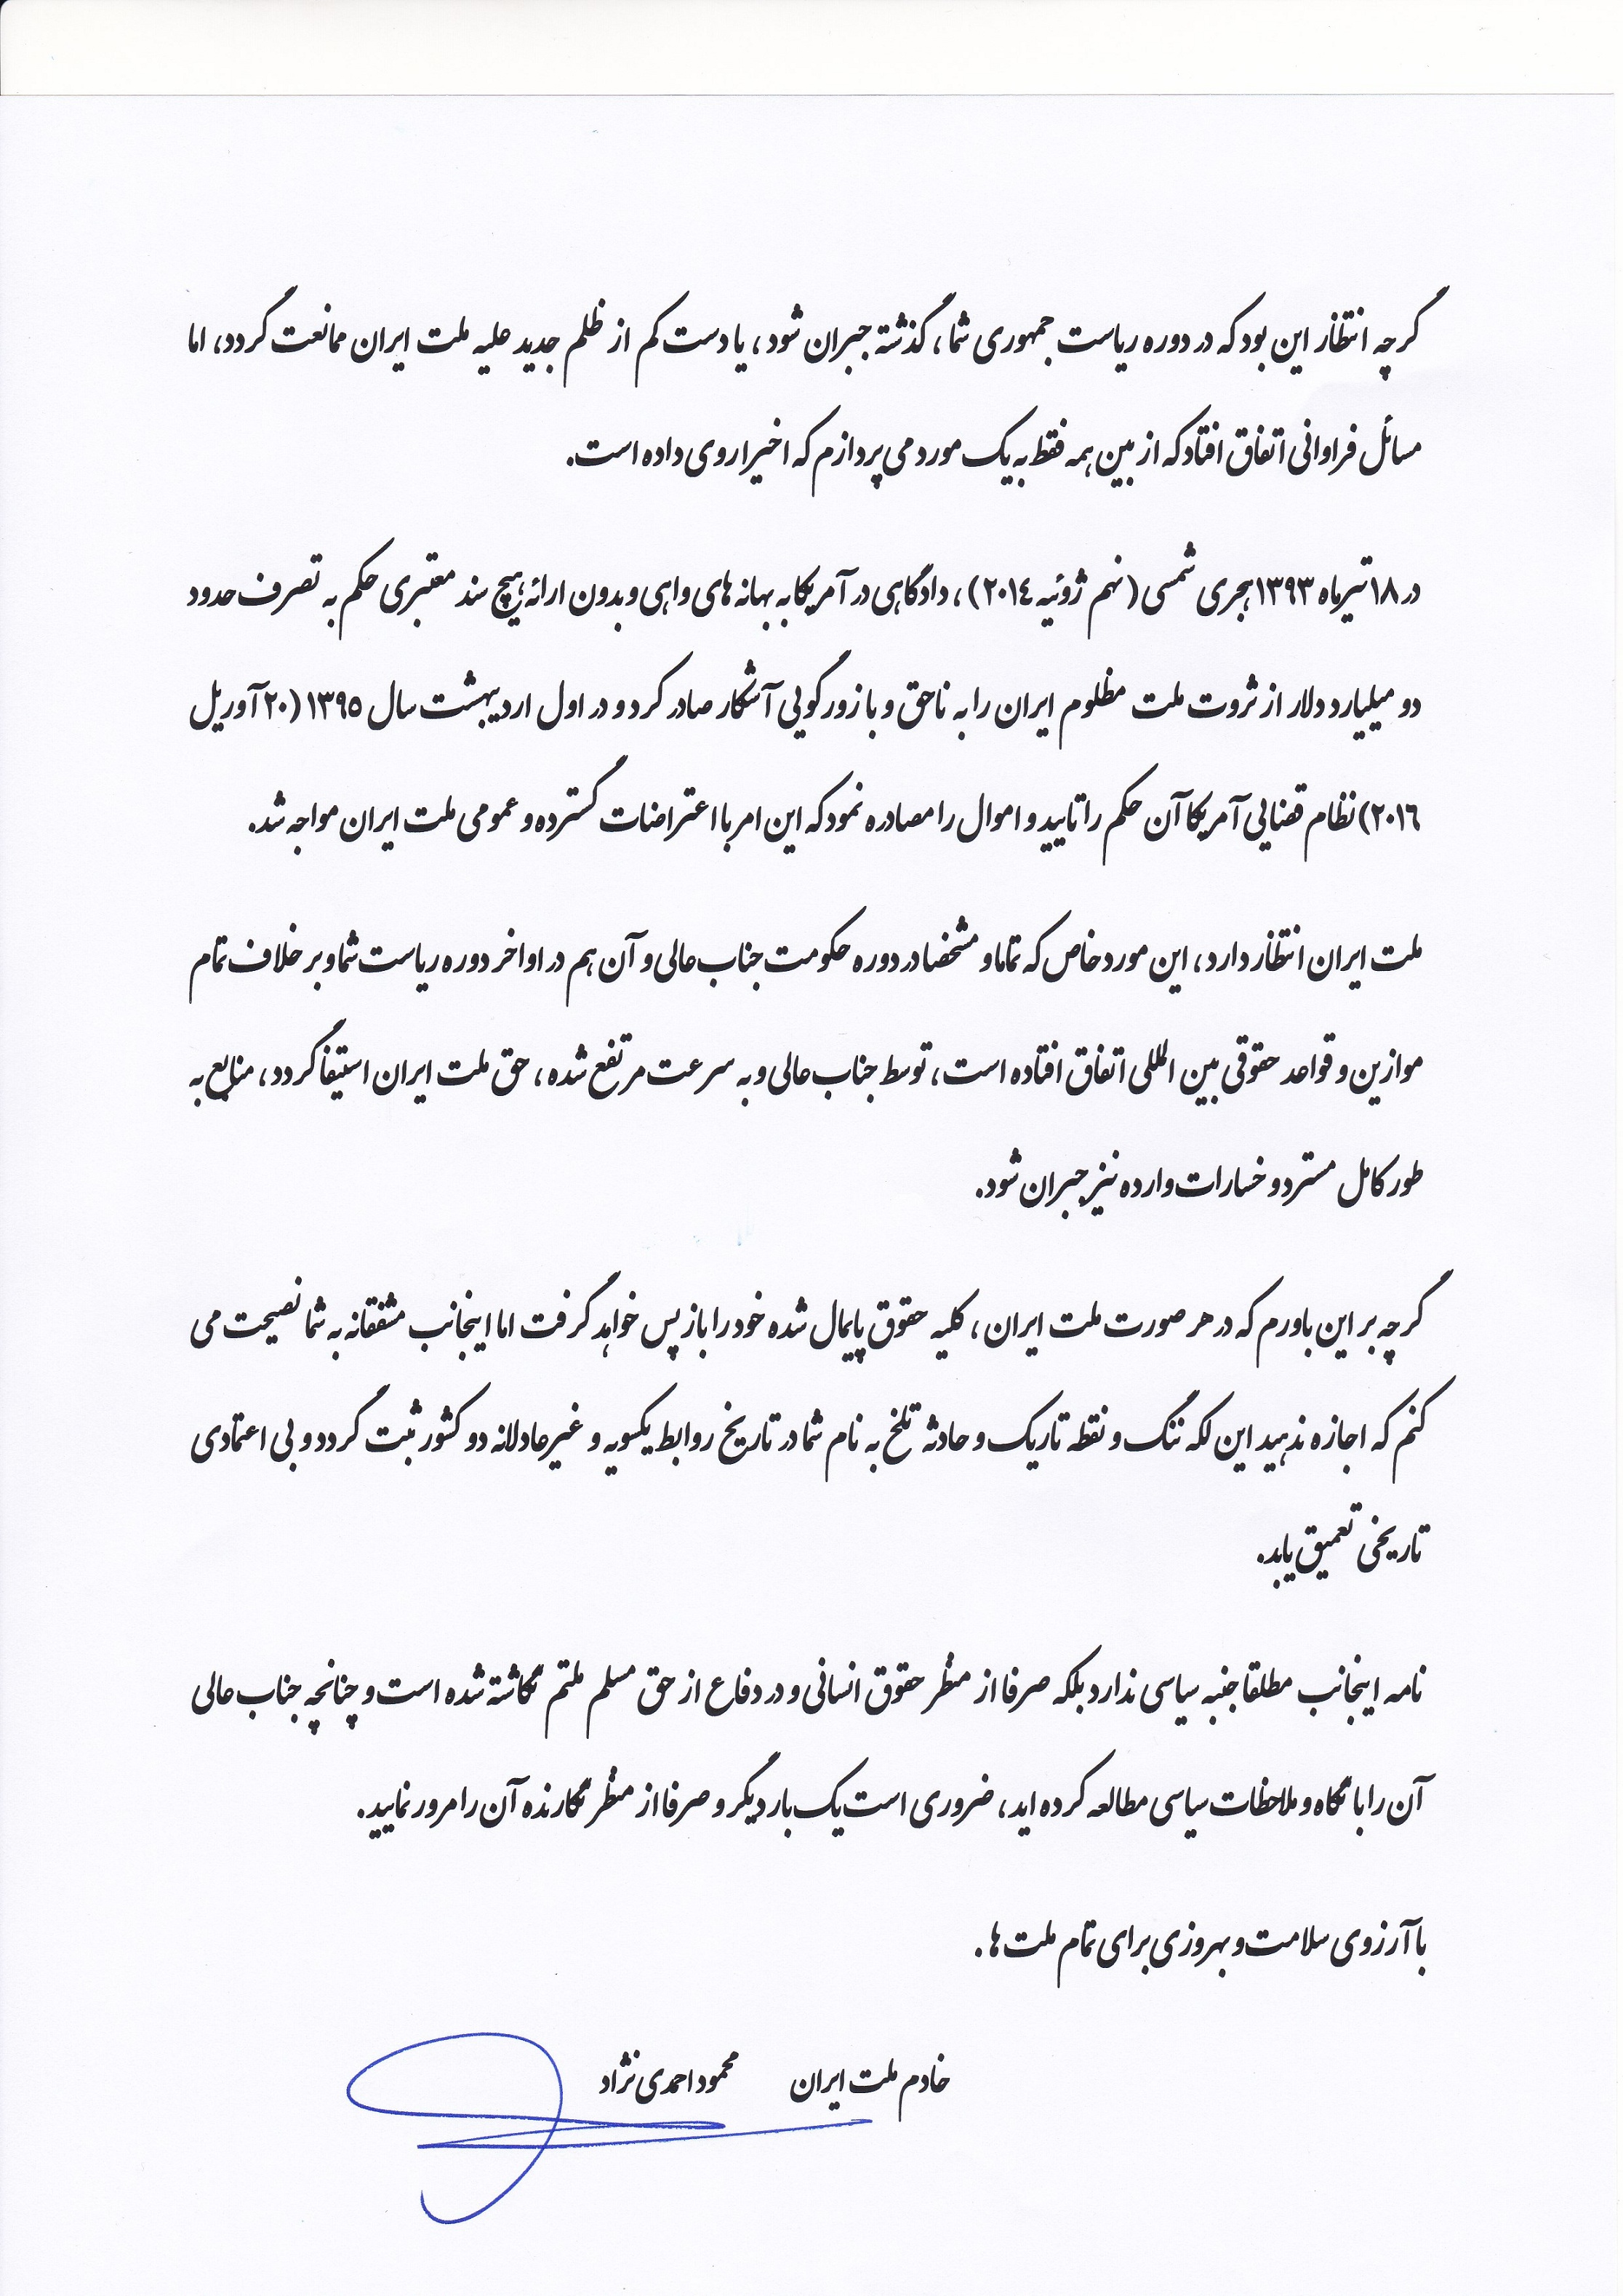 گرچه انتظار این بود که در دوره ریاست جمهوری شما، گذشته جبران شود، یا دست کم از ظلم جدید علیه ملت ایران ممانعت گردد، اما
مسائل فراوانی اتفاق افتاد که از بین همه فقط به یک مورد می پردازم که اخیرا روی داده است.
در ۱۸ تیرماه ۱۳۹۳ هجری شمسی (نهم ژوئیه ۲۰۱٤)، دادگاهی در آمریکا به بهانه های واهی و بدون ارائه هیچ سند معتبری حکم به تصرف حدود
دو میلیارد دلار از ثروت ملت مظلوم ایران را به ناحق و با زورگویی آشکار صادر کرد و در اول اردیبهشت سال ۱۳۹٥ (۲۰ آوریل
۲۰۱٦) نظام قضایی آمریکا آن حکم را تایید و اموال را مصادره نمود که این امر با اعتراضات گسترده و عمومی ملت ایران مواجه شد.
ملت ایران انتظار دارد، این مورد خاص که تماما و مشخصا در دوره حکومت جناب عالی و آن هم در اواخر دوره ریاست شما و بر خلاف تمام
موازین و قواعد حقوقی بین المللی اتفاق افتاده است، توسط جناب عالی و به سرعت مرتفع شده، حق ملت ایران استیفا گردد، منابع به
طور کامل مسترد و خسارات وارده نیز جبران شود.
گرچه بر این باورم که در هر صورت ملت ایران، کلیه حقوق پایمال شده خود را باز پس خواهد گرفت اما اینجانب مشفقانه به شما نصیحت می
کنم که اجازه ندهید این لکه ننگ و نقطه تاریک و حادثه تلخ به نام شما در تاریخ روابط یکسویه و غیرعادلانه دو کشور ثبت گردد و بی اعتمادی
تاریخی تعمیق یابد.
نامه اینجانب مطلقا جنبه سیاسی ندارد بلکه صرفا از منظر حقوق انسانی و در دفاع از حق مسلم ملتم نگاشته شده است و چنانچه جناب عالی
آن را با نگاه و ملاحظات سیاسی مطالعه کرده اید، ضروری است یک بار دیگر و صرفا از منظر نگارنده آن را مرور نمایید.
با آرزوی سلامت و بهروزی برای تمام ملت ها.
خادم ملت ایران محمود احمدی نژاد